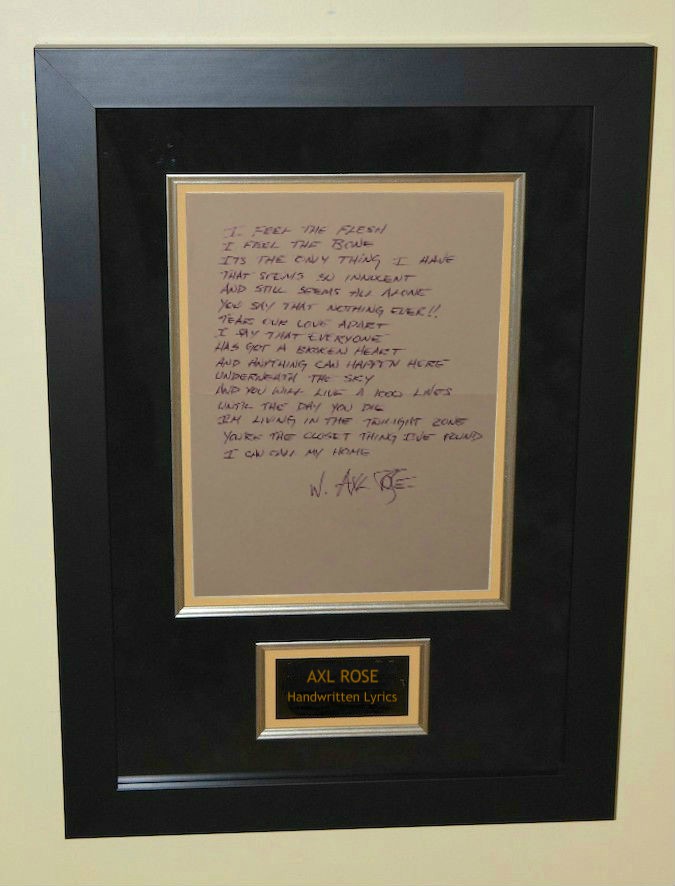 I FEEL THE FLESH
I FEEL THE BONE
ITS THE ONLY THING I HAVE
THAT SEEMS SO INNOCENT
AND STILL SEEMS ALL ALONE
YOU SAY THAT NOTHING EVER!!
TEARS OUR LOVE APART
I SAY THAT EVERYONE
HAS GOT A BROKEN HEART
AND ANYTHING CAN HAPPEN HERE
UNDERNEATH THE SKY
AND YOU WILL LIVE A 1000 LIVES
UNTIL THE DAY YOU DIE
I'M LIVING IN THE TWILIGHT ZONE
YOU'RE THE CLOSET THING I'VE FOUND
I CAN CALL MY HOME
W. AXL ROSE
AXL ROSE
Handwritten Lyrics